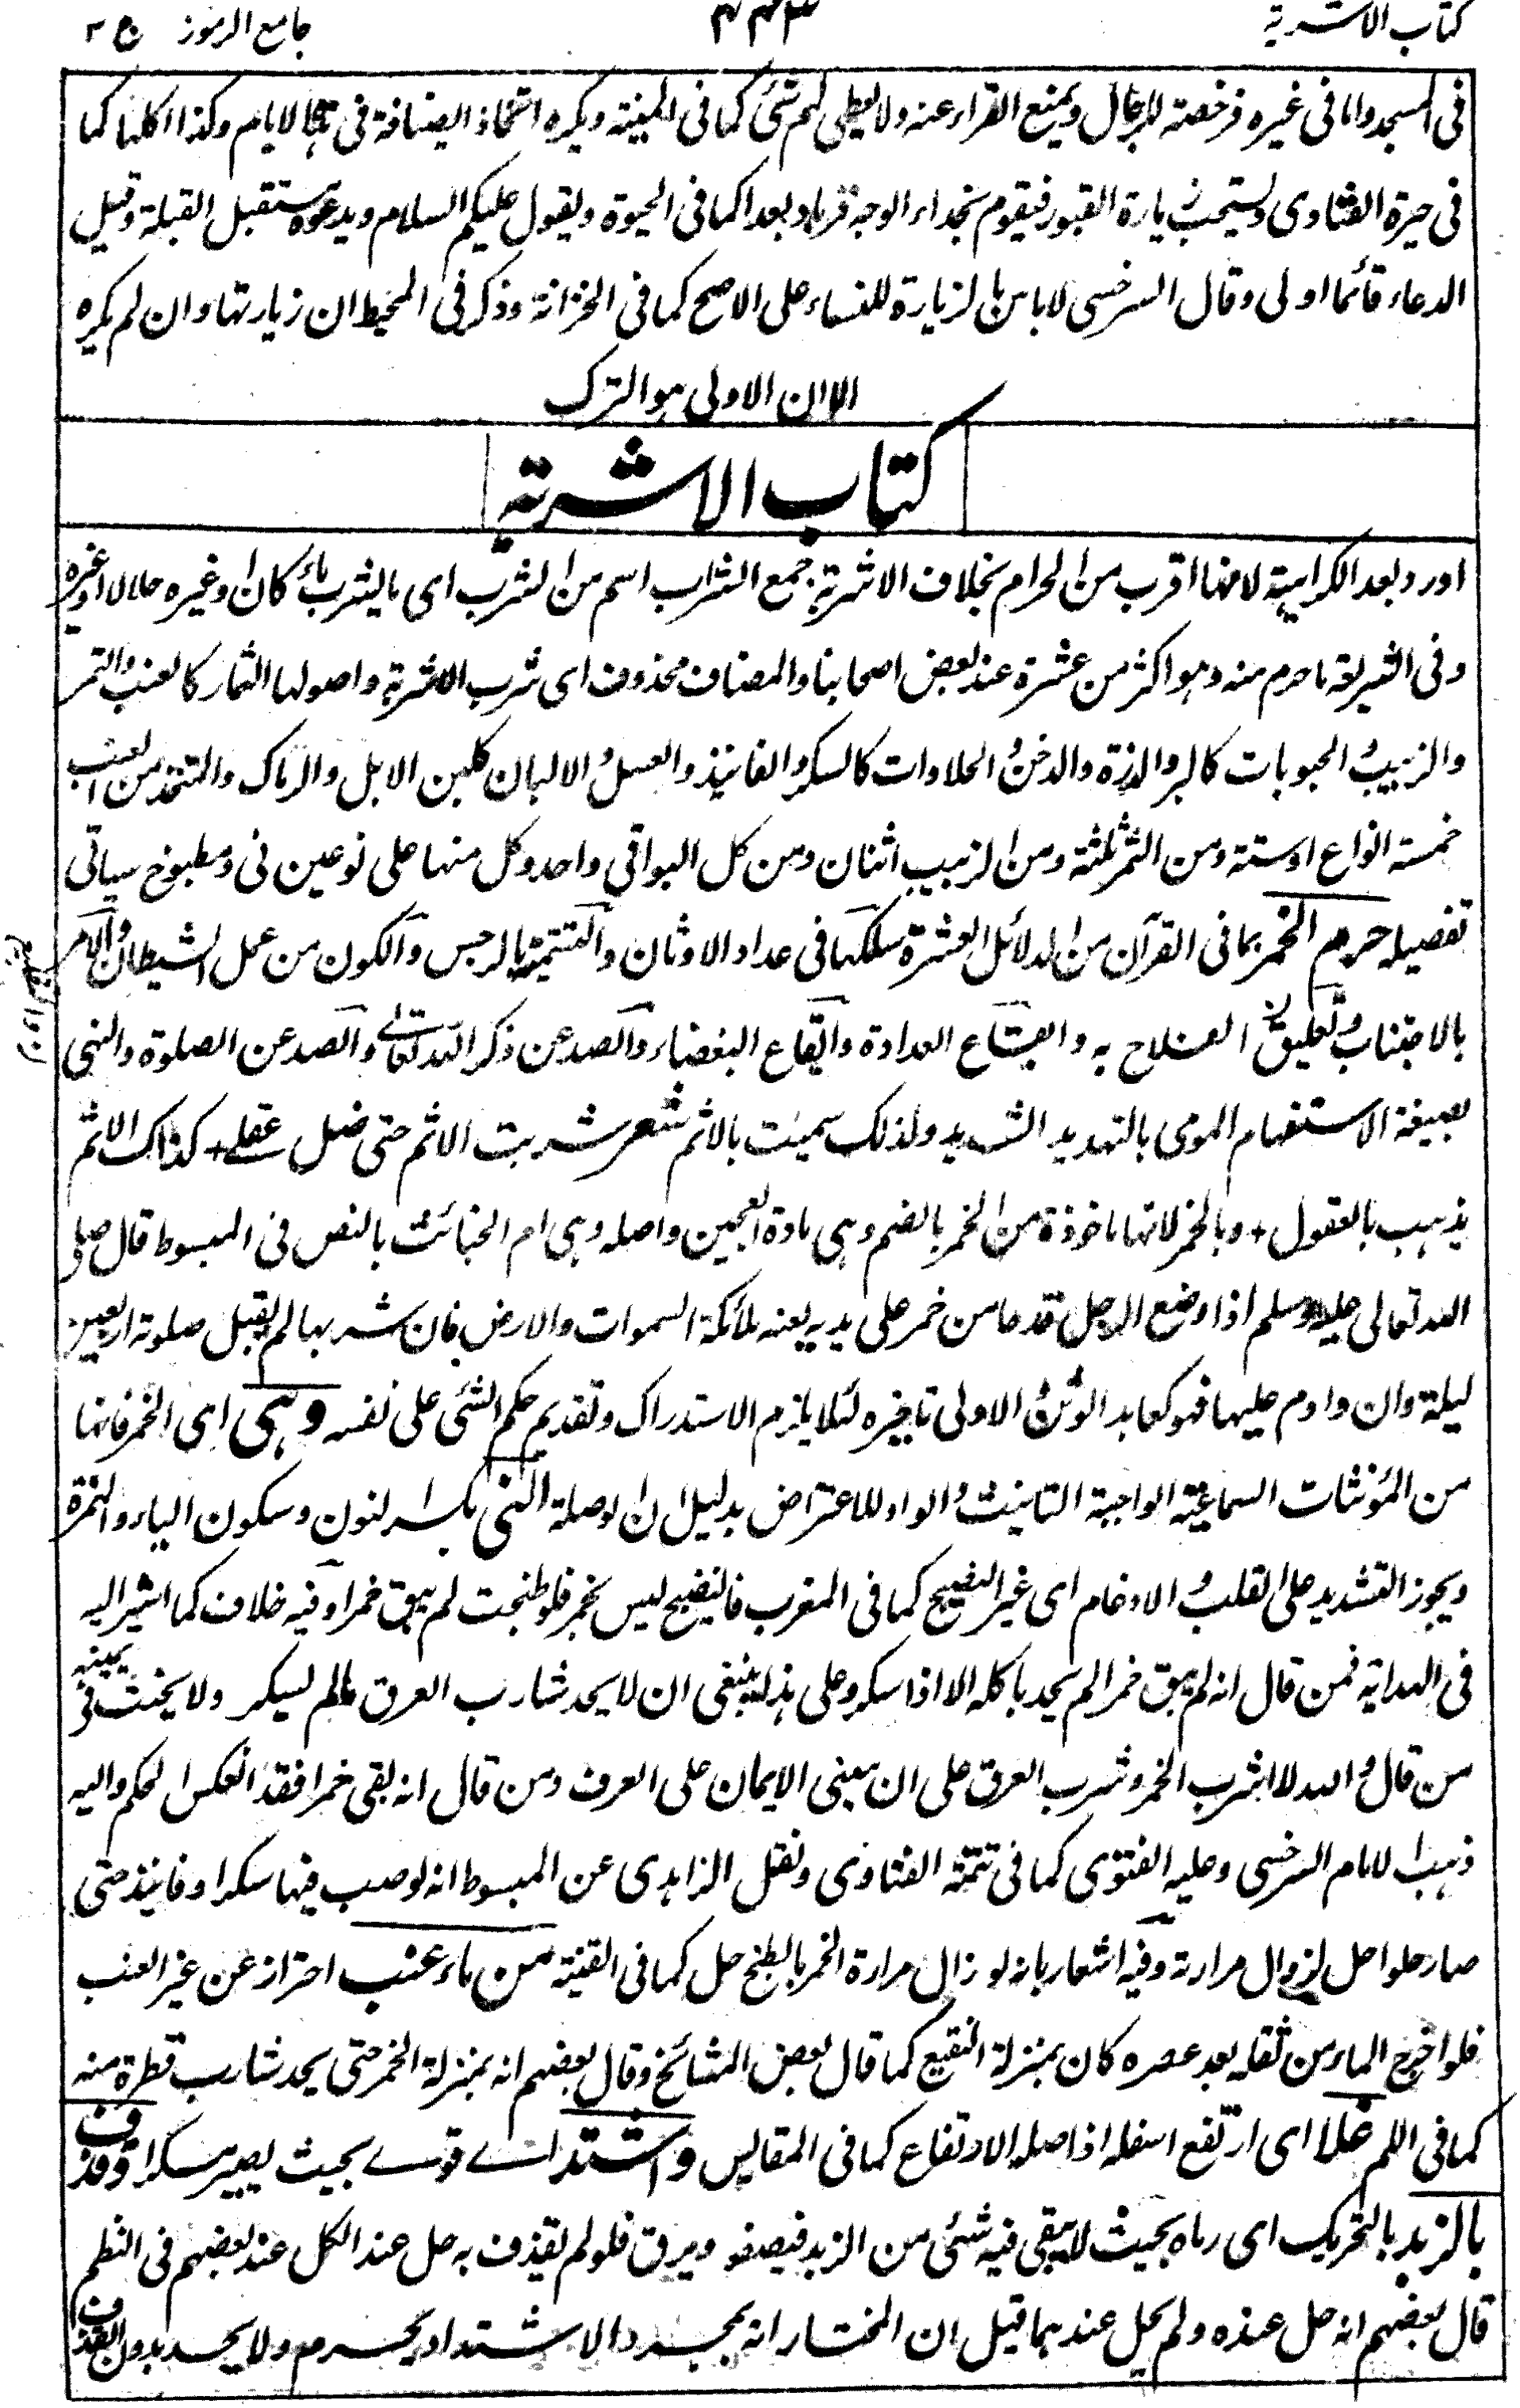 كتاب الاشربة ٣٣٤ جامع الرموز ج ٣
فى المسجد واما فى غيره فرخصة للرجال ويمنع القراء عنه ولا يعطى لهم شئ كما فى المنية ويكره اتخاذ الضيافة فى هذه الايام وكذا اكلها كما
فى حيرة الفتاوى ويستحب زيارة القبور فيقوم بحذاء الوجه قربا وبعدا كما فى الحيوة ويقول عليكم السلام ويدعو مستقبل القبلة وقيل
الدعاء قائما اولى وقال السرخسى لا باس بالزيارة للنساء على الاصح كما فى الخزانة وذكر فى المحيط ان زيارتها وان لم يكره
الا ان الاولى هو الترك
كتاب الاشربة
اورد بعد الكراهية لانها اقرب من الحرام بخلاف الاشربة جمع الشراب اسم من الشرب اى ما يشرب ماء كان او غيره حلالا او غيره
وفى الشريعة ما حرم منه وهو اكثر من عشرة عند بعض اصحابنا والمضاف محذوف اى شرب الاشربة واصولها الثمار كالعنب والتمر
والزبيب والحبوبات كالبر والذرة والدخن والحلاوات كالسكر والفانيذ والعسل والالبان كلبن الابل والرماك والمتخذ من العنب
خمسة انواع او ستة ومن التمر ثلثة ومن الزبيب اثنان ومن كل البواقى واحد وكل منها على نوعين نى ومطبوخ سياتى
تفصيله حرم الخمر بما فى القرآن من الدلائل العشرة سلكها فى عداد الاوثان والتسمية بالرجس والكون من عمل الشيطان والامر
بالاجتناب وتعليق الفلاح به وايقاع العداوة وايقاع البغضاء والصد عن ذكر الله تعالے والصد عن الصلوة والنهى
بصيغة الاستفهام الموى بالتهديد الشديد ولذلك سميت بالاثم شعر شربت الاثم حتى ضل عقلے + كذاك الاثم
يذهب بالعقول + وبالخمر لانها ماخوذة من الخمر بالضم وهى مادة العجين واصله وهى ام الخبائث بالنص فى المبسوط قال صلى
الله تعالى عليه وسلم اذا وضع الرجل قدحا من خمر على يديه يعنه ملائكة السموات والارض فان شربها لم يقبل صلوته اربعين
ليلة وان داوم عليها فهو كعابد الوثن والاولى تاخيره لئلا يلزم الاستدراك وتقديم حكم الشئ على نفسه وهى اى الخمر فانها
من المؤنثات السماعية الواجبة التانيث والواو للاعتراض بدليل ان لوصلة النى بكسر النون وسكون الياء والهمزة
ويجوز التشديد على القلب والادغام اى غير النضيج كما فى المغرب فالنضيج ليس بخمر فلو طبخت لم يبق خمرا وفيه خلاف كما اشير اليه
فى الهداية فمن قال انه لم يبق خمرا لم يحد باكله الا اذا سكر وعلى هذا ينبغى ان لا يحد شارب العرق مالم يسكر ولا يحنث فى يمينه
من قال والله لا اشرب الخمر وشرب العرق على ان مبنى الايمان على العرف ومن قال انه بقى خمرا فقد انعكس الحكم واليه
ذهب الامام السرخسى وعليه الفتوى كما فى تتمة الفتاوى ونقل الزاهدى عن المبسوط انه لو صب فيها سكرا وفانيذ حتى
صار حلوا حل لزوال مرارته وفيه اشعار بانه لو زال مرارة الخمر بالطبخ حل كما فى القنية من ماء عنب احتراز عن غير العنب
فلو اخرج الماء من ثفله بعد عصره كان بمنزلة النقيع كما قال بعض المشائخ وقال بعضهم انه بمنزلة الخمر حتى يحد شارب قطرة منه
كما فى اللم غلا اى ارتفع اسفله اذ اصله الارتفاع كما فى المقاييس واشتد اے قوے بحيث يصير مسكرا وقذف
بالزبد بالتحريك اى رماه بحيث لا يبقى فيه شئ من الزبد فيصفو ويرق فلو لم يقذف به حل عند الكل عند بعضهم فى النظم
قال بعضهم انه حل عنده ولم يحل عندهما قيل ان المختار انه بمجرد الاشتداد يحرم ولا يحد بدون القذف